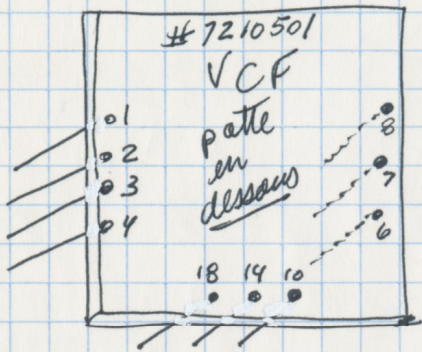 # 7210501
VCF
patte
en
dessous
1
2
3
4
8
7
6
18 14 10